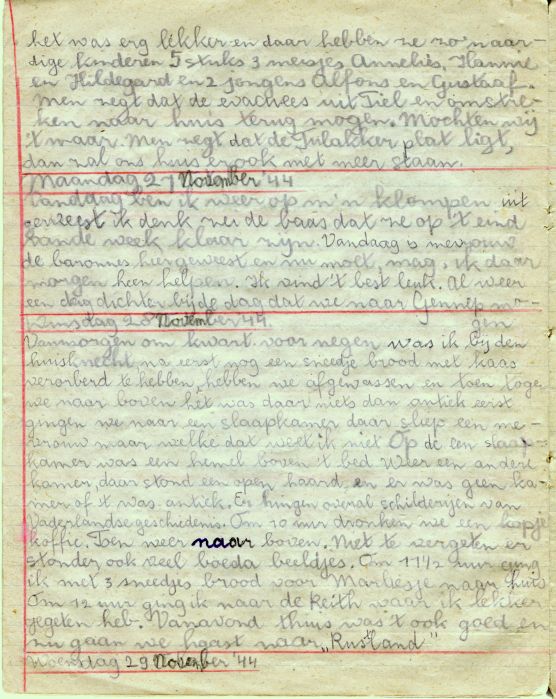 het was erg lekker en daar hebben ze zo'n aar-
dige kinderen 5 stuks 3 meisjes Annelies, Hanne
en Hildegard en 2 jongens Alfons en Gustaaf.
Men zegt dat de evacuees uit Tiel en omstre-
ken naar huis terug mogen. Mochten wij
't maar. Men zegt dat de Julakker plat ligt,
dan zal ons huis er ook niet meer staan.
Maandag 27 November '44
Vandaag ben ik weer op m'n klompen uit
geweest ik denk zei de baas dat ze op 't eind
van de week klaar zijn. Vandaag is mevrouw
de barones hier geweest en nu moet, mag, ik daar
morgen heen helpen. Ik vind 't best leuk. Al weer
een dag dichter bij de dag dat we naar Gennep mo-
gen
Dinsdag 28 November '44.
Vanmorgen om kwart voor negen was ik bij den
huisknecht, na eerst nog een sneetje brood met kaas
verorberd te hebben, hebben we afgewassen en toen togen
we naar boven het was daar niets dan antiek eerst
gingen we naar een slaapkamer daar sliep een me-
vrouw maar welke dat weet ik niet Op de een slaap-
kamer was een hemel boven 't bed Weer een andere
kamer, daar stond een open haard, en er was geen ka-
mer of 't was antiek. Er hingen overal schilderijen van
Vaderlandse geschiedenis. Om 10 uur dronken we een kopje
koffie. Toen weer naar boven. Niet te vergeten er
stonden ook veel boeda beeldjes. Om 11½ uur ging
ik met 3 sneedjes brood voor Marliesje naar huis
Om 12 uur ging ik naar de Reith waar ik lekker
gegeten heb. Vanavond thuis was 't ook goed en
nu gaan we haast naar "Rustland"
Woensdag 29 November '44